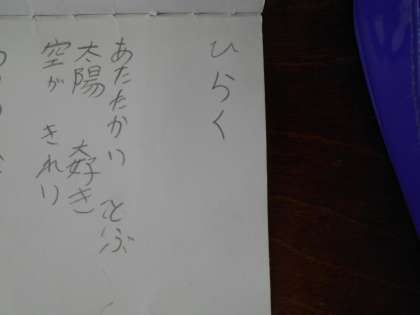 ひらく
あたたかい とぶ
太陽 好き
空が きれい